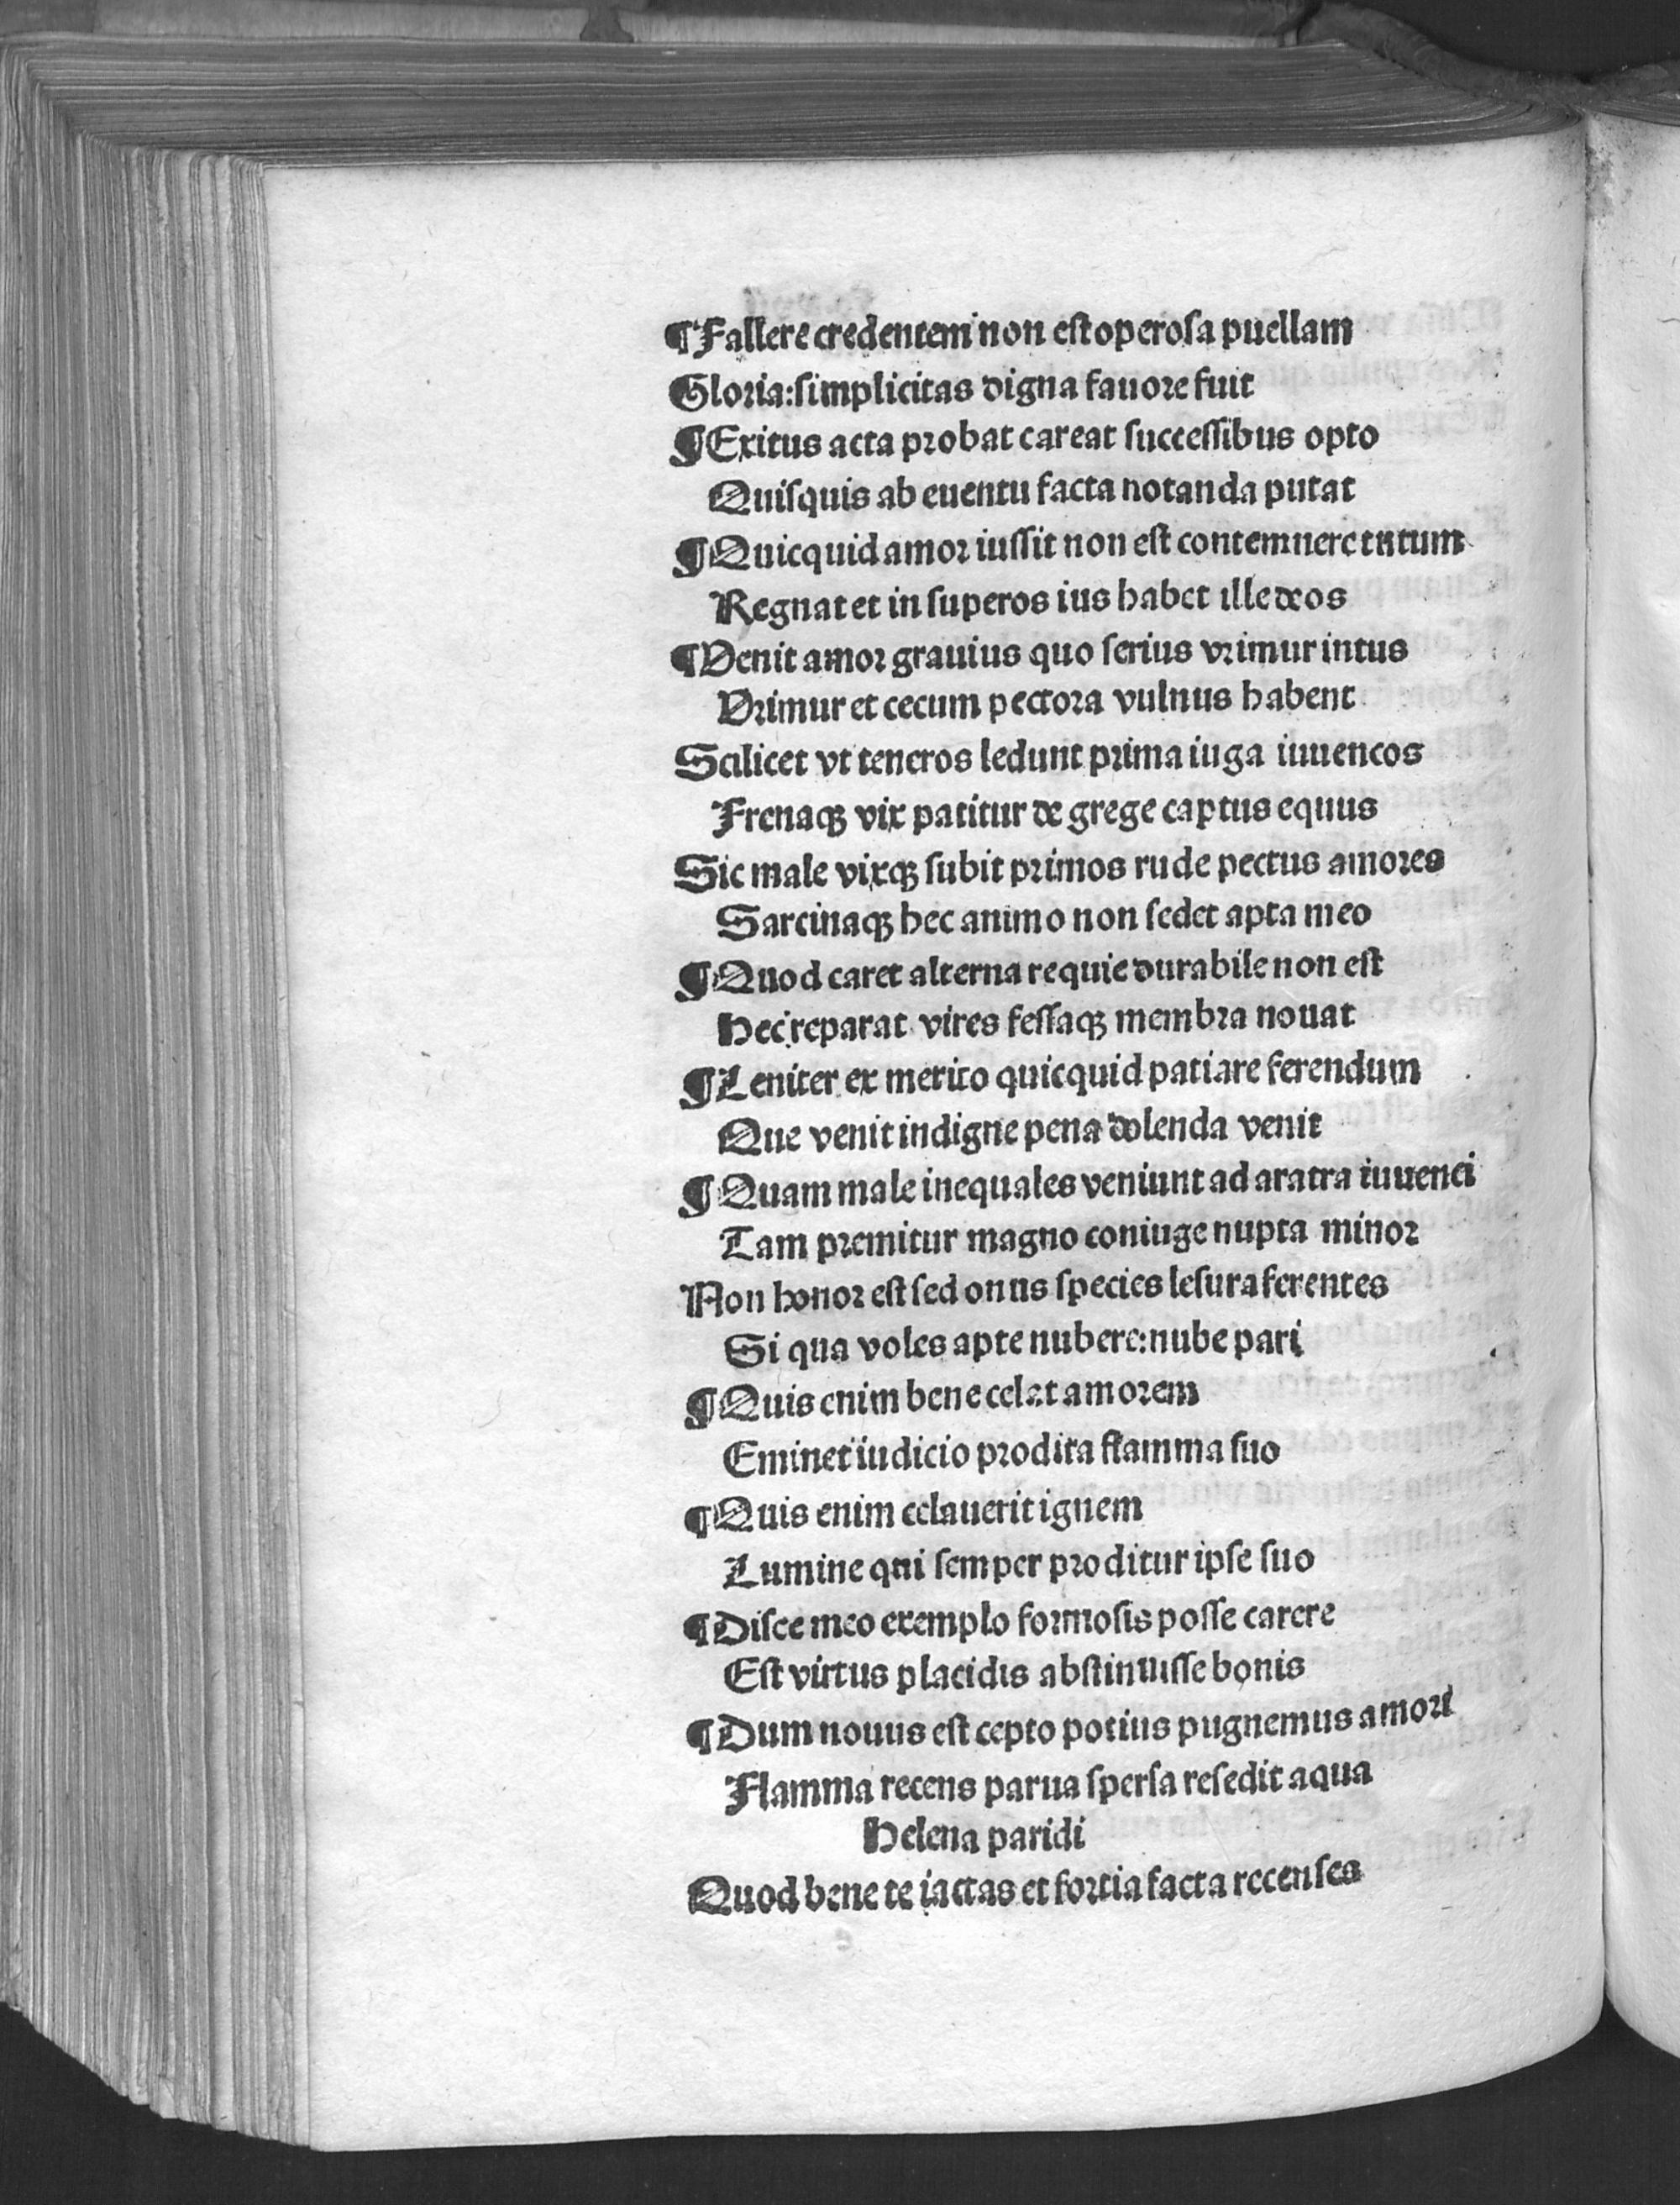 ¶Fallere credentem non est operosa puellam
Gloria:simplicitas digna fauore fuit
¶Exitus acta probat careat successibus opto
Quisquis ab euentu facta notanda putat
¶Quicquid amor iussit non est contemnere tutum
Regnat et in superos ius habet ille deos
¶Venit amor grauius quo serius vrimur intus
Vrimur et cecum pectora vulnus habent
Scilicet vt teneros ledunt prima iuga iuuencos
Frenaqꝫ vix patitur de grege captus equus
Sic male vixqꝫ subit primos rude pectus amores
Sarcinaqꝫ hec animo non sedet apta meo
¶Quod caret alterna requie durabile non est
Hec reparat vires fessaqꝫ membra nouat
¶Leniter ex merito quicquid patiare ferendum
Que venit indigne pena dolenda venit
¶Quam male inequales veniunt ad aratra iuuenci
Tam premitur magno coniuge nupta minor
Non honor est sed onus species lesura ferentes
Si qua voles apte nubere:nube pari
¶Quis enim bene celat amorem
Eminet iudicio prodita flamma suo
¶Quis enim celauerit ignem
Lumine qui semper proditur ipse suo
¶Disce meo exemplo formosis posse carere
Est virtus placidis abstinuisse bonis
¶Dum nouus est cepto potius pugnemus amori
Flamma recens parua spersa resedit aqua
Helena paridi
Quod bene te iactas et fortia facta recenses